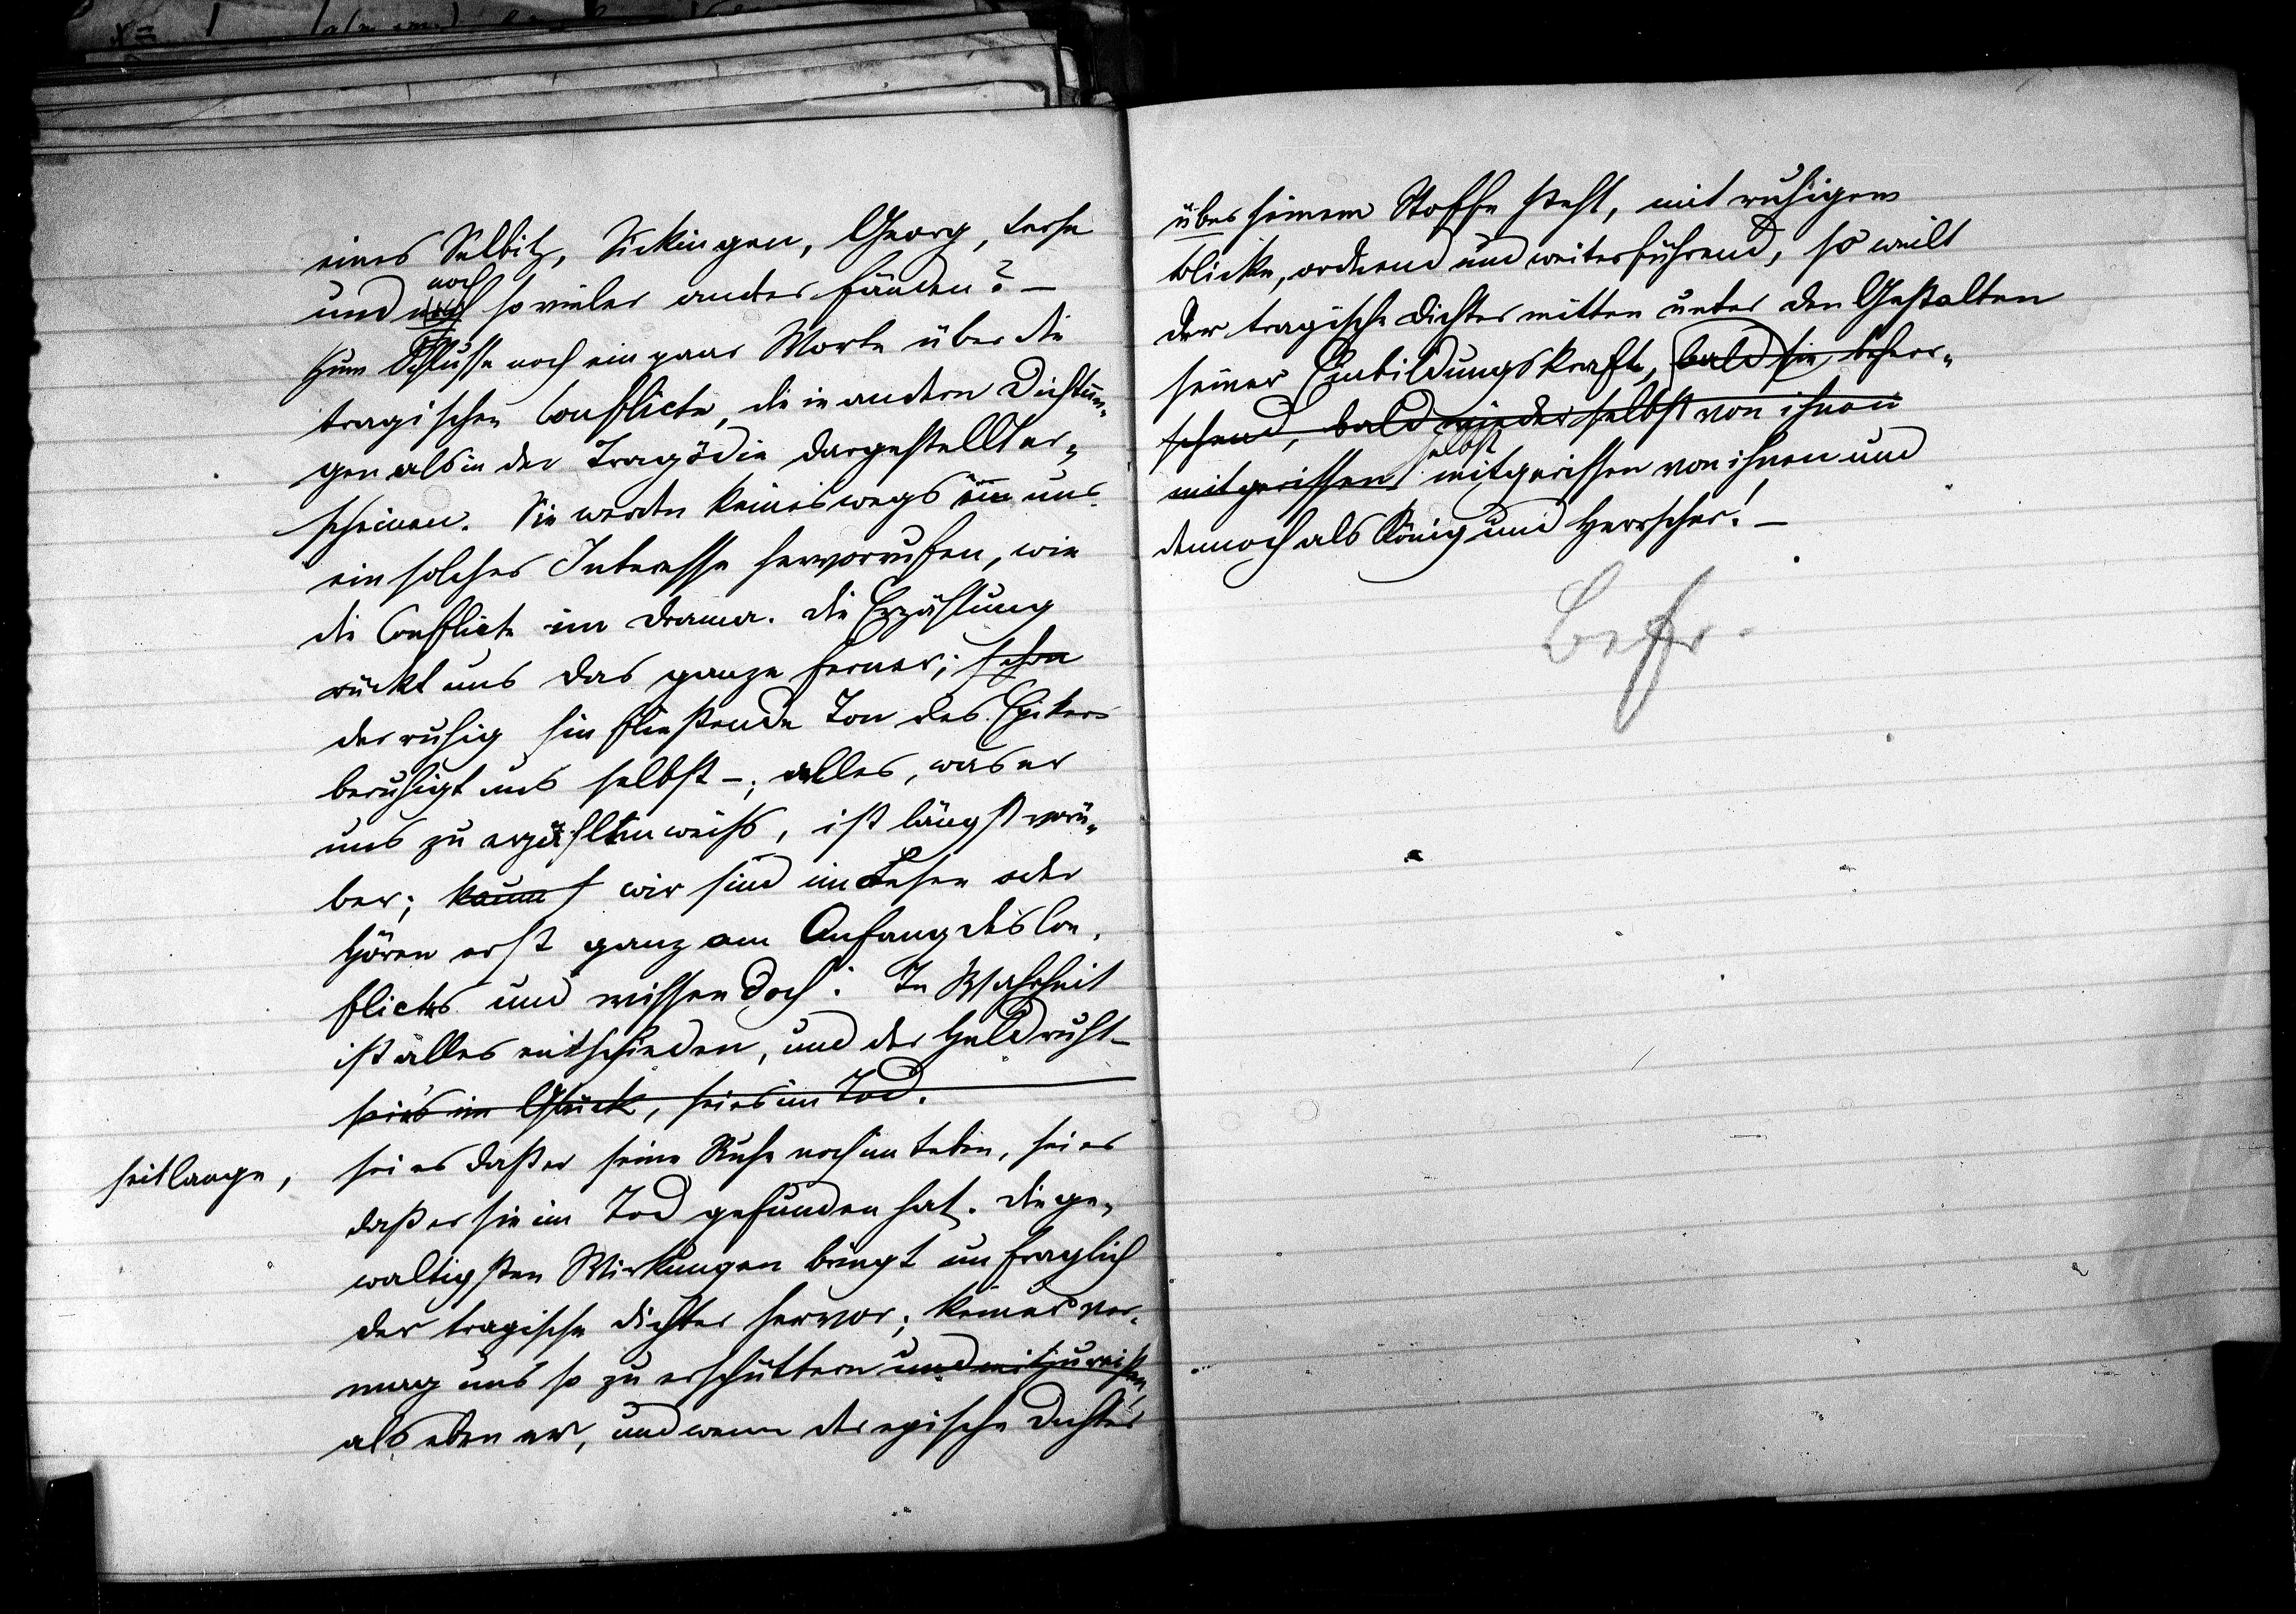 eines Selbitz, Sickingen, Georg, Lerse
und noch so vieler ander fänden? –
Zum Schlusse noch ein paar Worte über die
tragischen Conflicte, die in andern Dichtun-
gen als in der Tragödie dargestellt er-
scheinen. Sie werden keineswegs in uns
ein solches Interesse hervorrufen, wie
die Conflicte im Drama. Die Erzählung
rückt uns das ganze ferner; schon
der ruhig hin fließende Ton des Epikers
beruhigt uns selbst –; alles, was er
uns zu erzählen weiß, ist längst vorü-
ber; kaum wir sind im Lesen oder
Hören erst ganz am Anfang des Con-
flictes und wissen doch: In Wahrheit
ist alles entschieden, und der Held ruht –
sei's im Glück, sei es im Tod.
seit lange,
sei es daß er seine Ruhe noch im Leben, sei es
daß er sie im Tod gefunden hat. Die ge-
waltigsten Wirkungen bringt unfraglich
der tragische Dichter hervor; keiner ver-
mag uns so zu erschüttern und mitzureißen,
als eben er, und wenn der epische Dichter
über seinem Stoffe steht, mit ruhigem
Blicke, ordnend und weiterführend, so weilt
der tragische Dichter mitten unter den Gestalten
seiner Einbildungskraft, bald sie beherr-
schend, bald wieder selbst von ihnen
mitgerissen selbst mitgerissen von ihnen und
dennoch als König und Herrscher! –